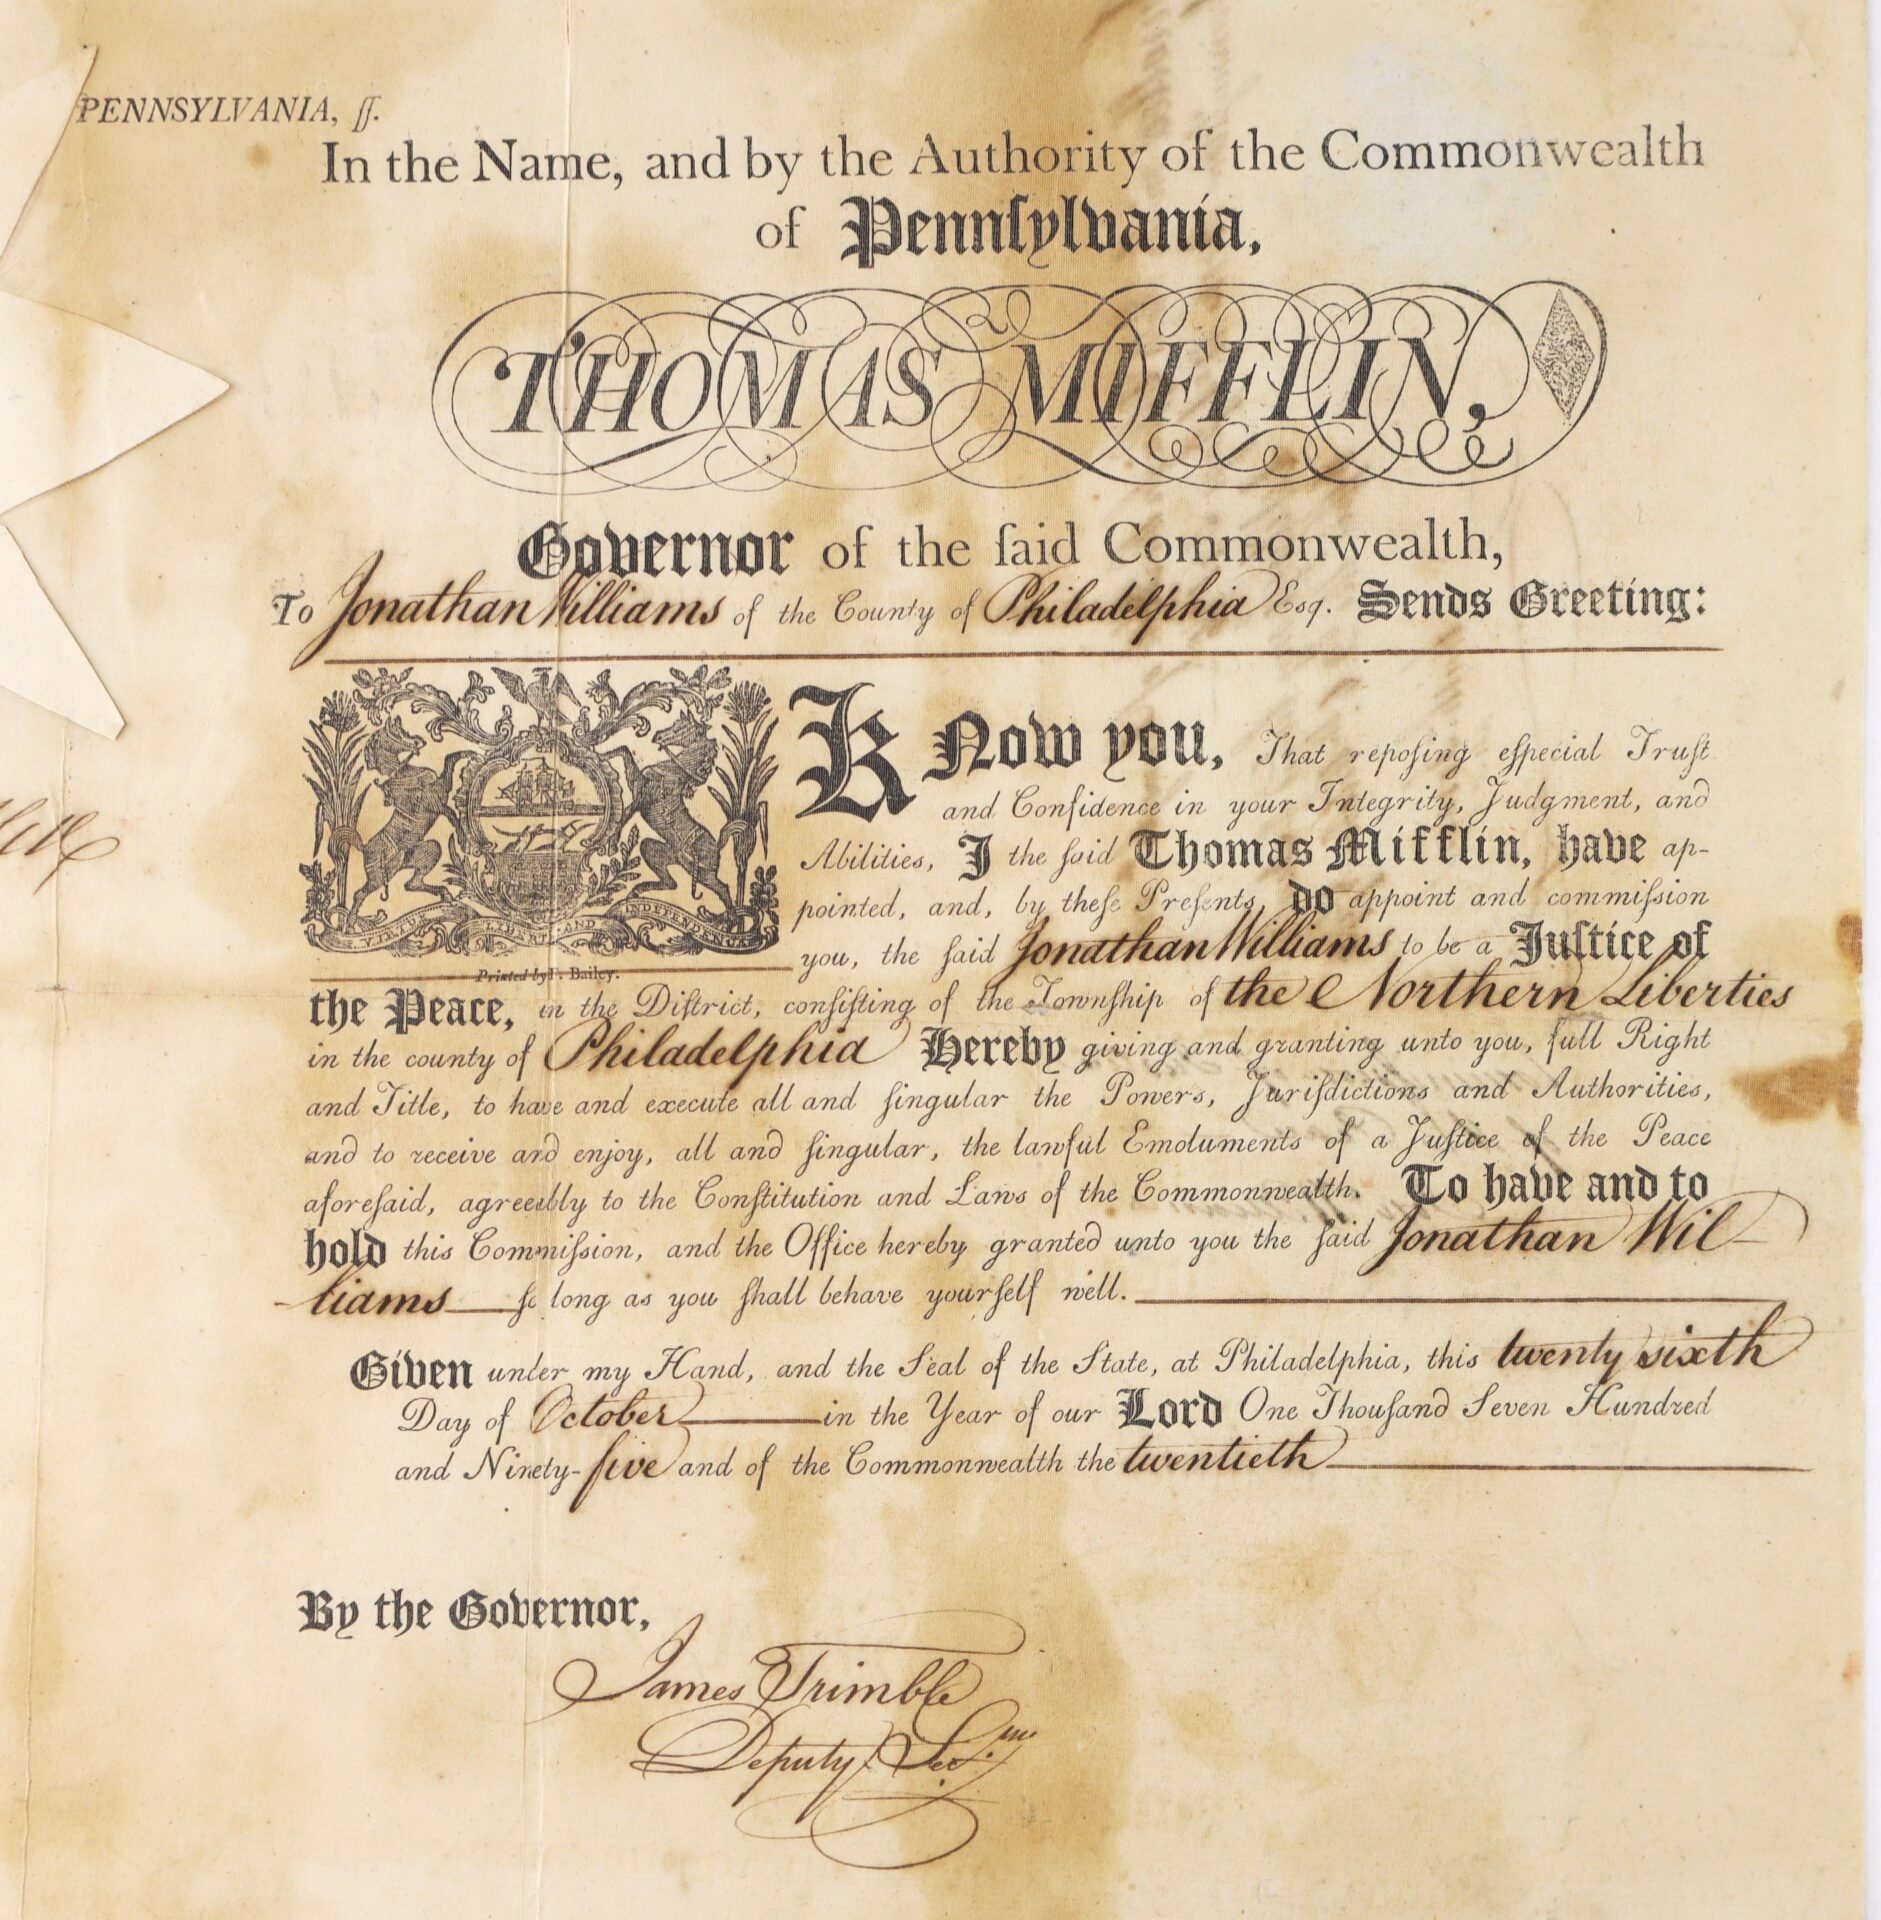 PENNSYLVANIA, ſſ.
In the Name, and by the Authority of the Commonwealth
of Pennſylvania,
THOMAS MIFFLIN,
Governor of the ſaid Commonwealth,
To Jonathan Williams of the County of Philadelphia Esq. Sends Greeting:
KNow you, That repoſing eſpecial Truſt
and Confidence in your Integrity, Judgment, and
Abilities, I the ſaid Thomas Mifflin, have ap-
pointed, and, by theſe Preſents, do appoint and commiſſion
you, the ſaid Jonathan Williams to be a Juſtice of
VIRTUE LIBERTY AND INDEPENDENCE
Printed by F. Bailey.
the Peace, in the Diſtrict, conſiſting of the Townſhip of the Northern Liberties
in the county of Philadelphia Hereby giving and granting unto you, full Right
and Title, to have and execute all and ſingular the Powers, Juriſdictions and Authorities,
and to receive and enjoy, all and ſingular, the lawful Emoluments of a Juſtice of the Peace
aforeſaid, agreeably to the Conſtitution and Laws of the Commonwealth. To have and to
hold this Commiſſion, and the Office hereby granted unto you the ſaid Jonathan Wil-
-liams ſo long as you ſhall behave yourſelf well.
Given under my Hand, and the Seal of the State, at Philadelphia, this twenty sixth
Day of October in the Year of our Lord One Thouſand Seven Hundred
and Ninety-five and of the Commonwealth the twentieth
By the Governor,
James Trimble
Deputy Secy.